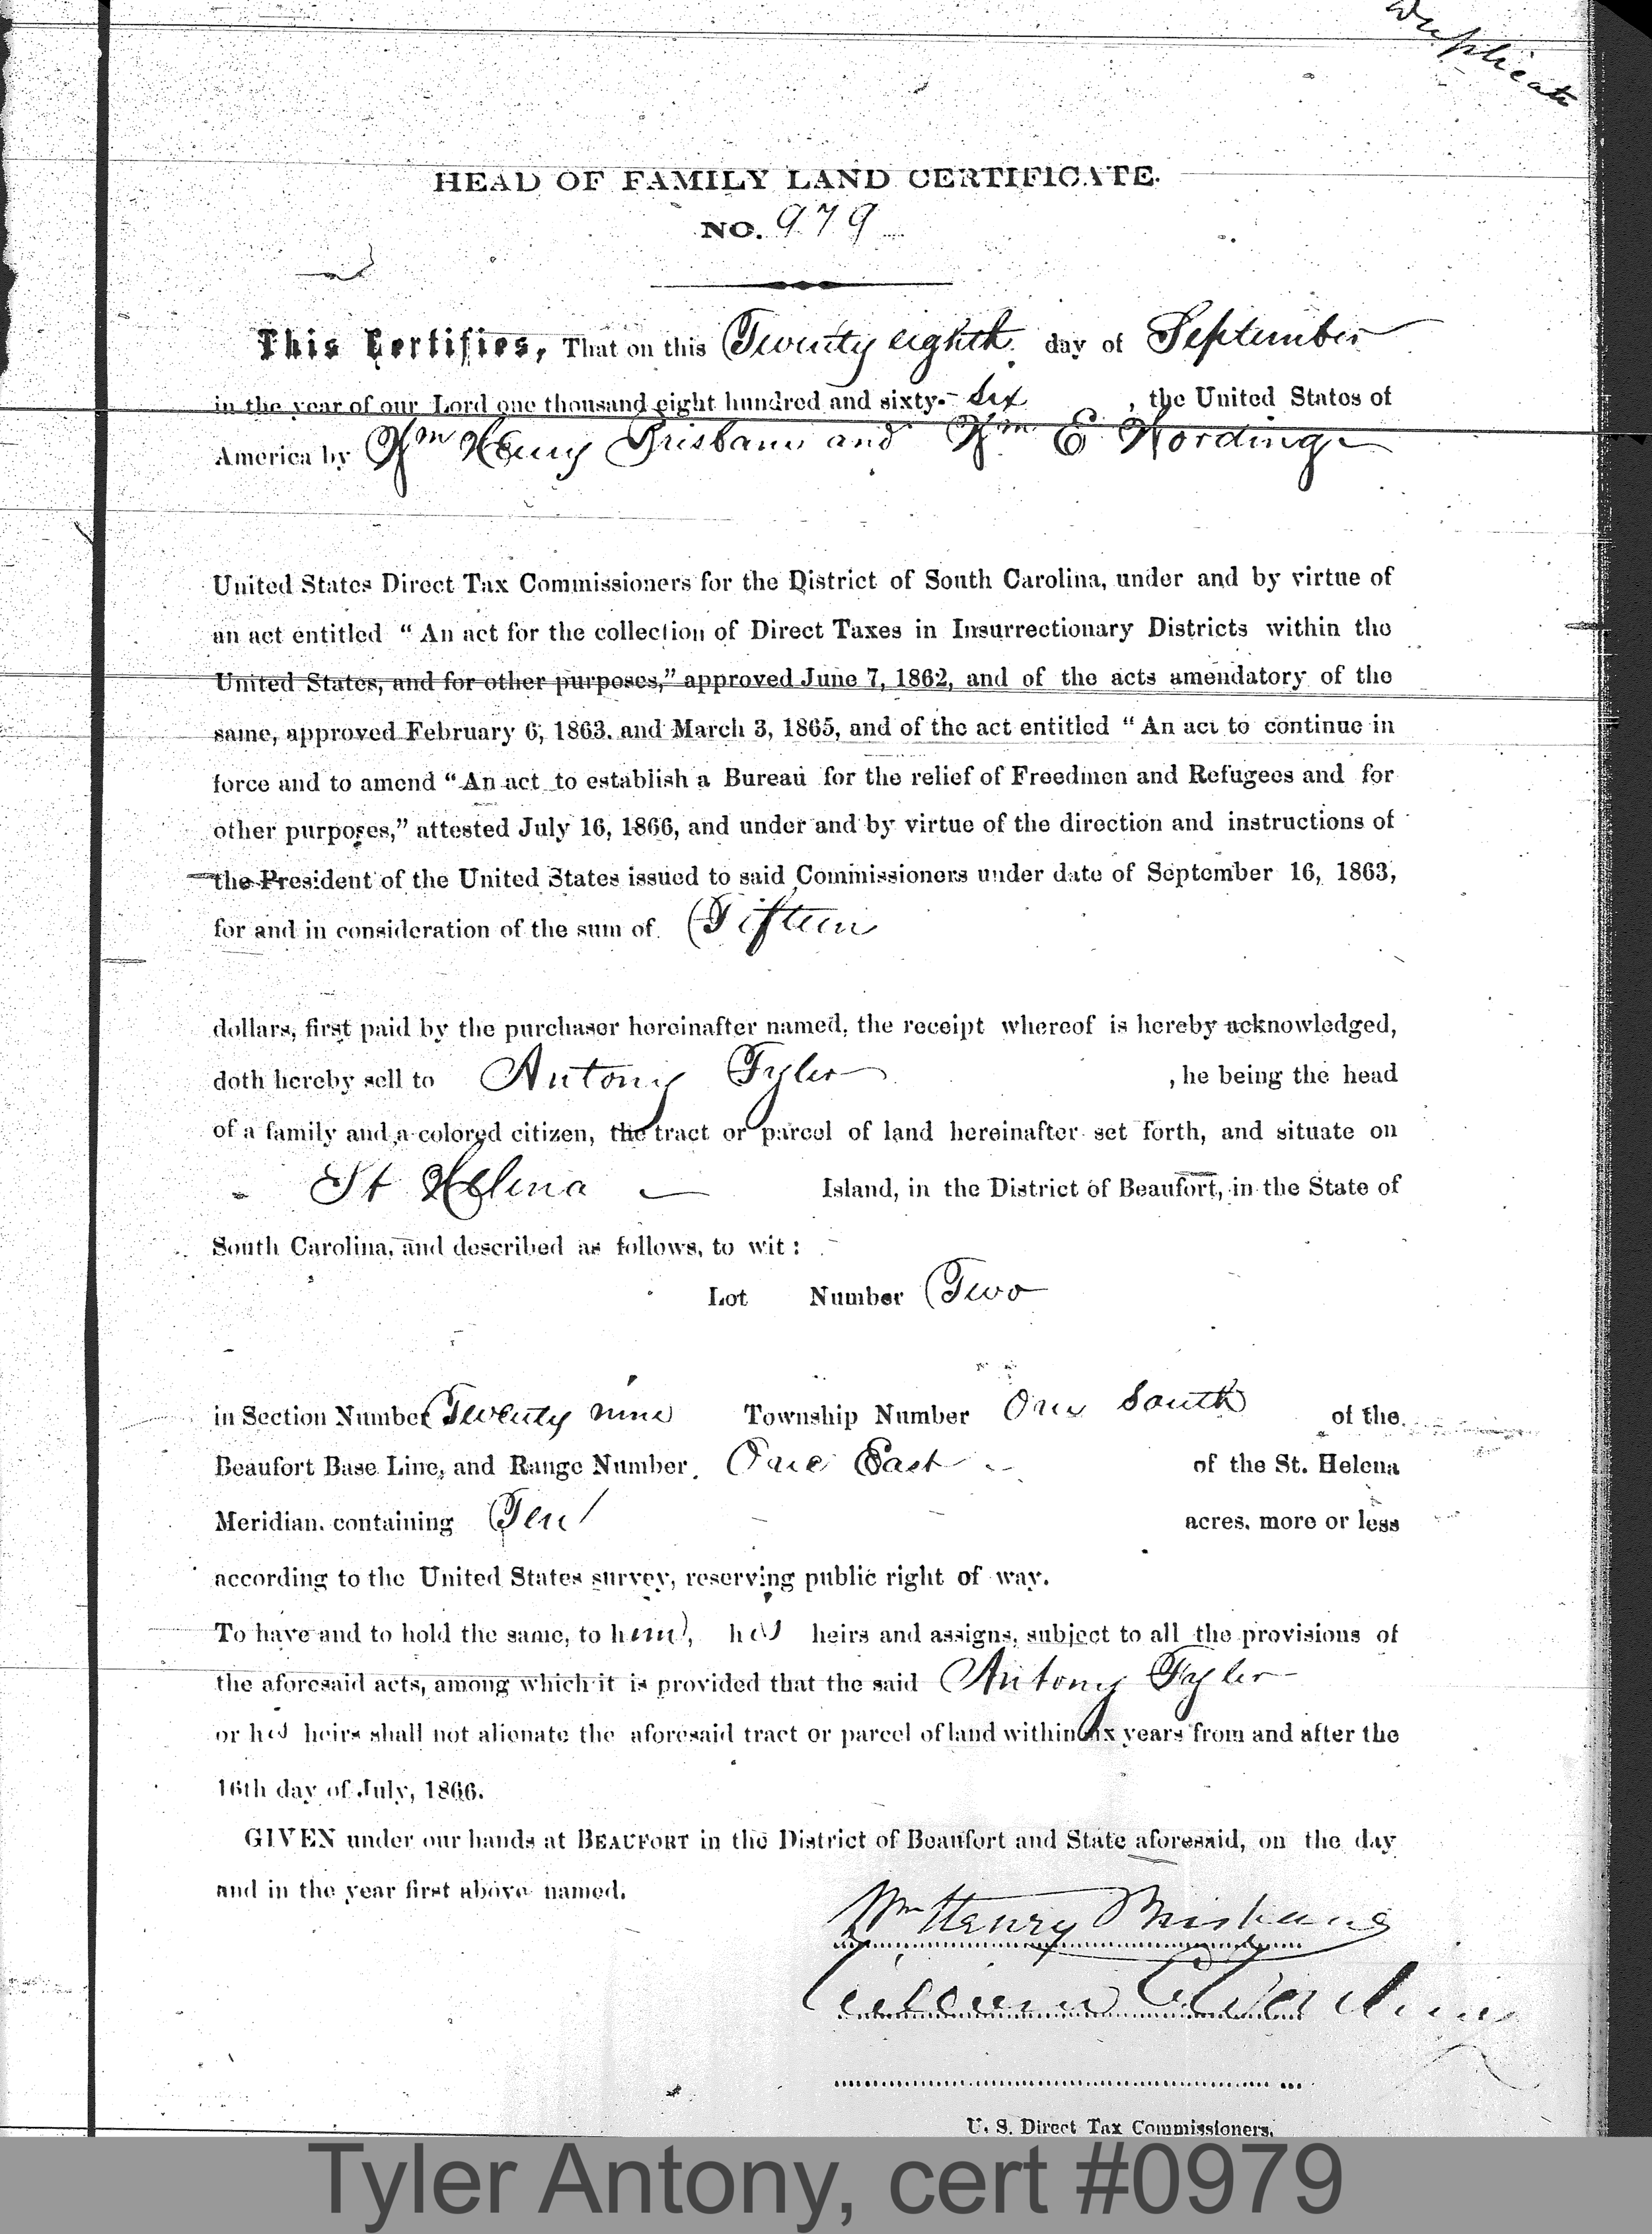 Duplicate
HEAD OF FAMILY LAND CERTIFICATE.
NO. 979
This Certifies, That on this Twenty eighth day of September
in the year of our Lord one thousand eight hundred and sixty-six, the United States of
America by Wm Henry Brisbane and Wm E Wording
United States Direct Tax Commissioners for the District of South Carolina, under and by virtue of
an act entitled “An act for the collection of Direct Taxes in Insurrectionary Districts within the
United States, and for other purposes,” approved June 7, 1862, and of the acts amendatory of the
same, approved February 6, 1863. and March 3, 1865, and of the act entitled “An act to continue in
force and to amend “An act to establish a Bureau for the relief of Freedmen and Refugees and for
other purposes,” attested July 16, 1866, and under and by virtue of the direction and instructions of
the President of the United States issued to said Commissioners under date of September 16, 1863,
for and in consideration of the sum of Fifteen
dollars, first paid by the purchaser hereinafter named, the receipt whereof is hereby acknowledged,
doth hereby sell to Antony Tyler, he being the head
of a family and a colored citizen, the tract or parcel of land hereinafter set forth, and situate on
St Helena Island, in the District of Beaufort, in the State of
South Carolina, and described as follows, to wit:
Lot Number Two
in Section Number Twenty nine Township Number One South of the
Beaufort Base Line, and Range Number One East of the St. Helena
Meridian, containing Ten acres, more or less
according to the United States survey, reserving public right of way.
To have and to hold the same, to him, his heirs and assigns, subject to all the provisions of
the aforesaid acts, among which it is provided that the said Antony Tyler
or his heirs shall not alienate the aforesaid tract or parcel of land within six years from and after the
16th day of July, 1866.
GIVEN under our hands at BEAUFORT in the District of Beaufort and State aforesaid, on the day
and in the year first above named.
Wm Henry Brisbane
William E Wording
U. S. Direct Tax Commissioners.
Tyler Antony, cert #0979